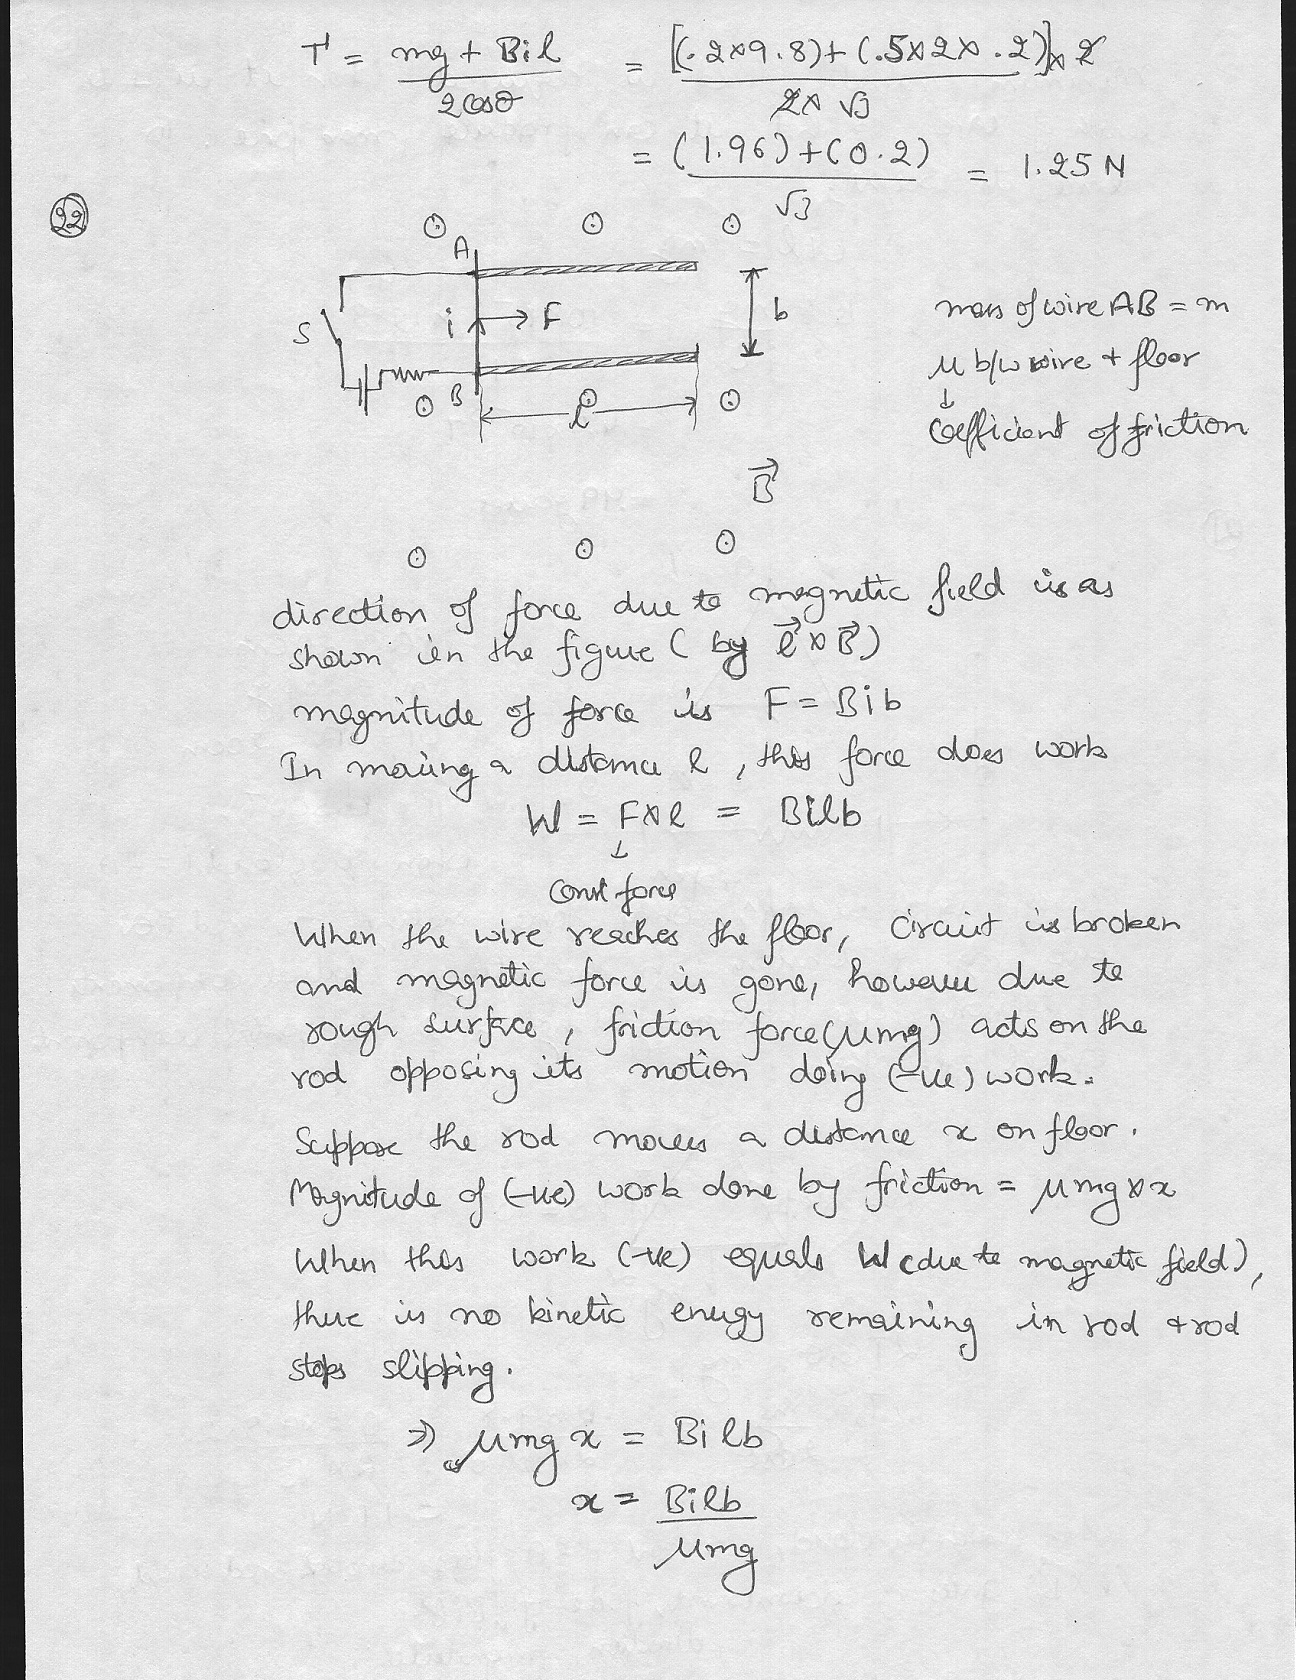 T' = (mg + Bil)/(2cosθ) = [(.2×9.8)+(.5×2×.2)]×2/(2×√3)
= ((1.96)+(0.2))/√3 = 1.25 N
22
A
S
i
F
b
B
l
B⃗
mass of wire AB = m
μ b/w wire + floor
↓
Coefficient of friction
direction of force due to magnetic field is as
shown in the figure ( by l⃗ × B⃗ )
magnitude of force is F = Bib
In moving a distance l , this force does work
W = F×l = Bilb
↓
Const force
When the wire reaches the floor, circuit is broken
and magnetic force is gone, however due to
rough surface , friction force(μmg) acts on the
rod opposing its motion doing (-ve) work.
Suppose the rod moves a distance x on floor.
Magnitude of (-ve) work done by friction = μmg×x
When this work (-ve) equals W (due to magnetic field),
there is no kinetic energy remaining in rod + rod
stops slipping.
⇒ μmg x = Bilb
x = Bilb/μmg